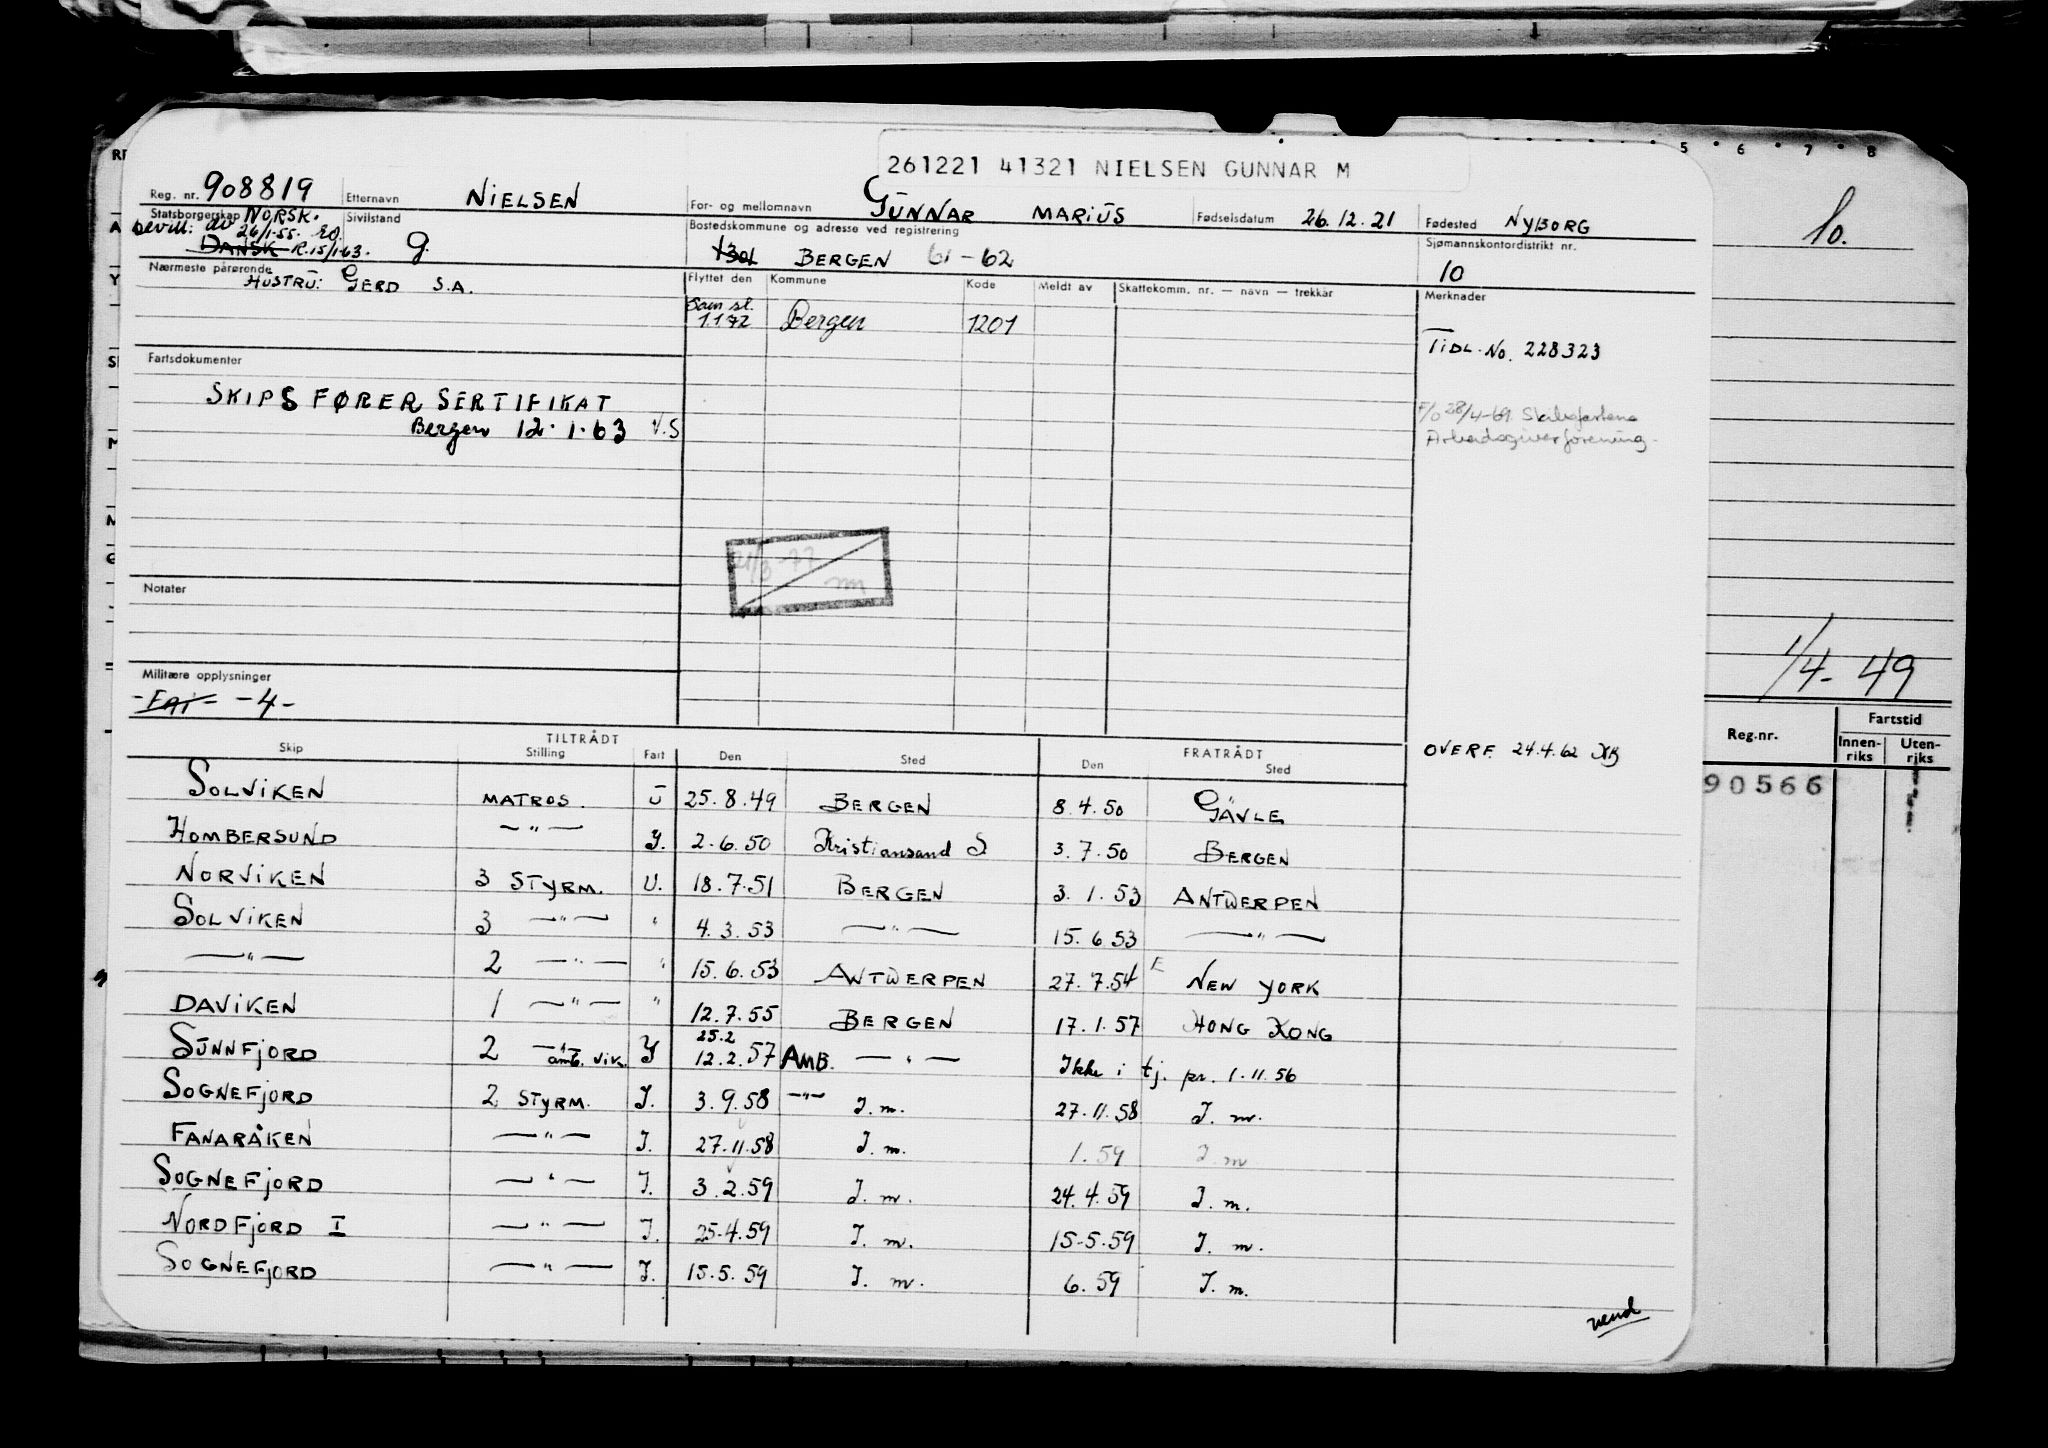 5 6 7 8
261221 41321 NIELSEN GUNNAR M
Reg. nr. 908819 Etternavn NIELSEN For- og mellomnavn GUNNAR MARIUS Fødselsdatum 26.12.21 Fødested NYBORG
10.
Statsborgerskap NORSK. Sivilstand Bostedskommune og adresse ved registrering Sjømannskontordistrikt nr.
bevill: av 26/1-55. RO.
DANSK R.15/1-63. g. 1301 BERGEN 61-62 10
Nærmeste pårørende Flyttet den Kommune Kode Meldt av Skattekomm. nr. — navn — trekkår Merknader
HUSTRU: GERD S.A.
Sam sl.
1172 Bergen 1201
TIDL. No. 228323
Fartsdokumenter
SKIPSFØRER SERTIFIKAT
Bergen 12.1.63 V.S
F/O 28/4-69 Skibsfartens
Arbeidsgiverforening.
21/3-77
Notater
Militære opplysninger
-FAT- -4-
1/4-49
Reg.nr. Fartstid
Innen-riks Uten-riks
90566
TILTRÅDT FRATRÅDT
Skip Stilling Fart Den Sted Den Sted
OVERF. 24.4.62
SOLVIKEN MATROS. U 25.8.49 BERGEN 8.4.50 GÄVLE
HOMBERSUND —"— I. 2.6.50 Kristiansand S 3.7.50 BERGEN
NORVIKEN 3 STYRM. U. 18.7.51 BERGEN 3.1.53 ANTWERPEN
SOLVIKEN 3 —"— " 4.3.53 —"— 15.6.53 —"—
—"— 2 —"— " 15.6.53 ANTWERPEN 27.7.54 E NEW YORK
DAVIKEN 1 —"— " 12.7.55 BERGEN 17.1.57 HONG KONG
SUNNFJORD 2 —"— amb. vik. I 25.2 12.2.57 AMB. —"— Ikke i tj. pr. 1.11.56
SOGNEFJORD 2 STYRM. I. 3.9.58 —"— I.m. 27.11.58 I.m.
FANARÅKEN —"— I. 27.11.58 I.m. 1.59 I.m
SOGNEFJORD —"— I. 3.2.59 I.m. 24.4.59 I.m.
NORDFJORD I —"— I. 25.4.59 I.m. 15-5.59 I.m.
SOGNEFJORD —"— I. 15.5.59 I.m. 6.59 I.m.
vend